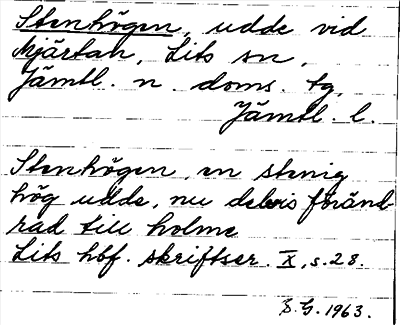 Stenhögen, udde vid
Mjärtan, Lits sn,
Jämtl. n. doms. tg,
Jämtl. l.
Stenhögen, en stenig
hög udde, nu delvis föränd
rad till holme
Lits hbf. skriftser. X, s. 28.
S. G. 1963.